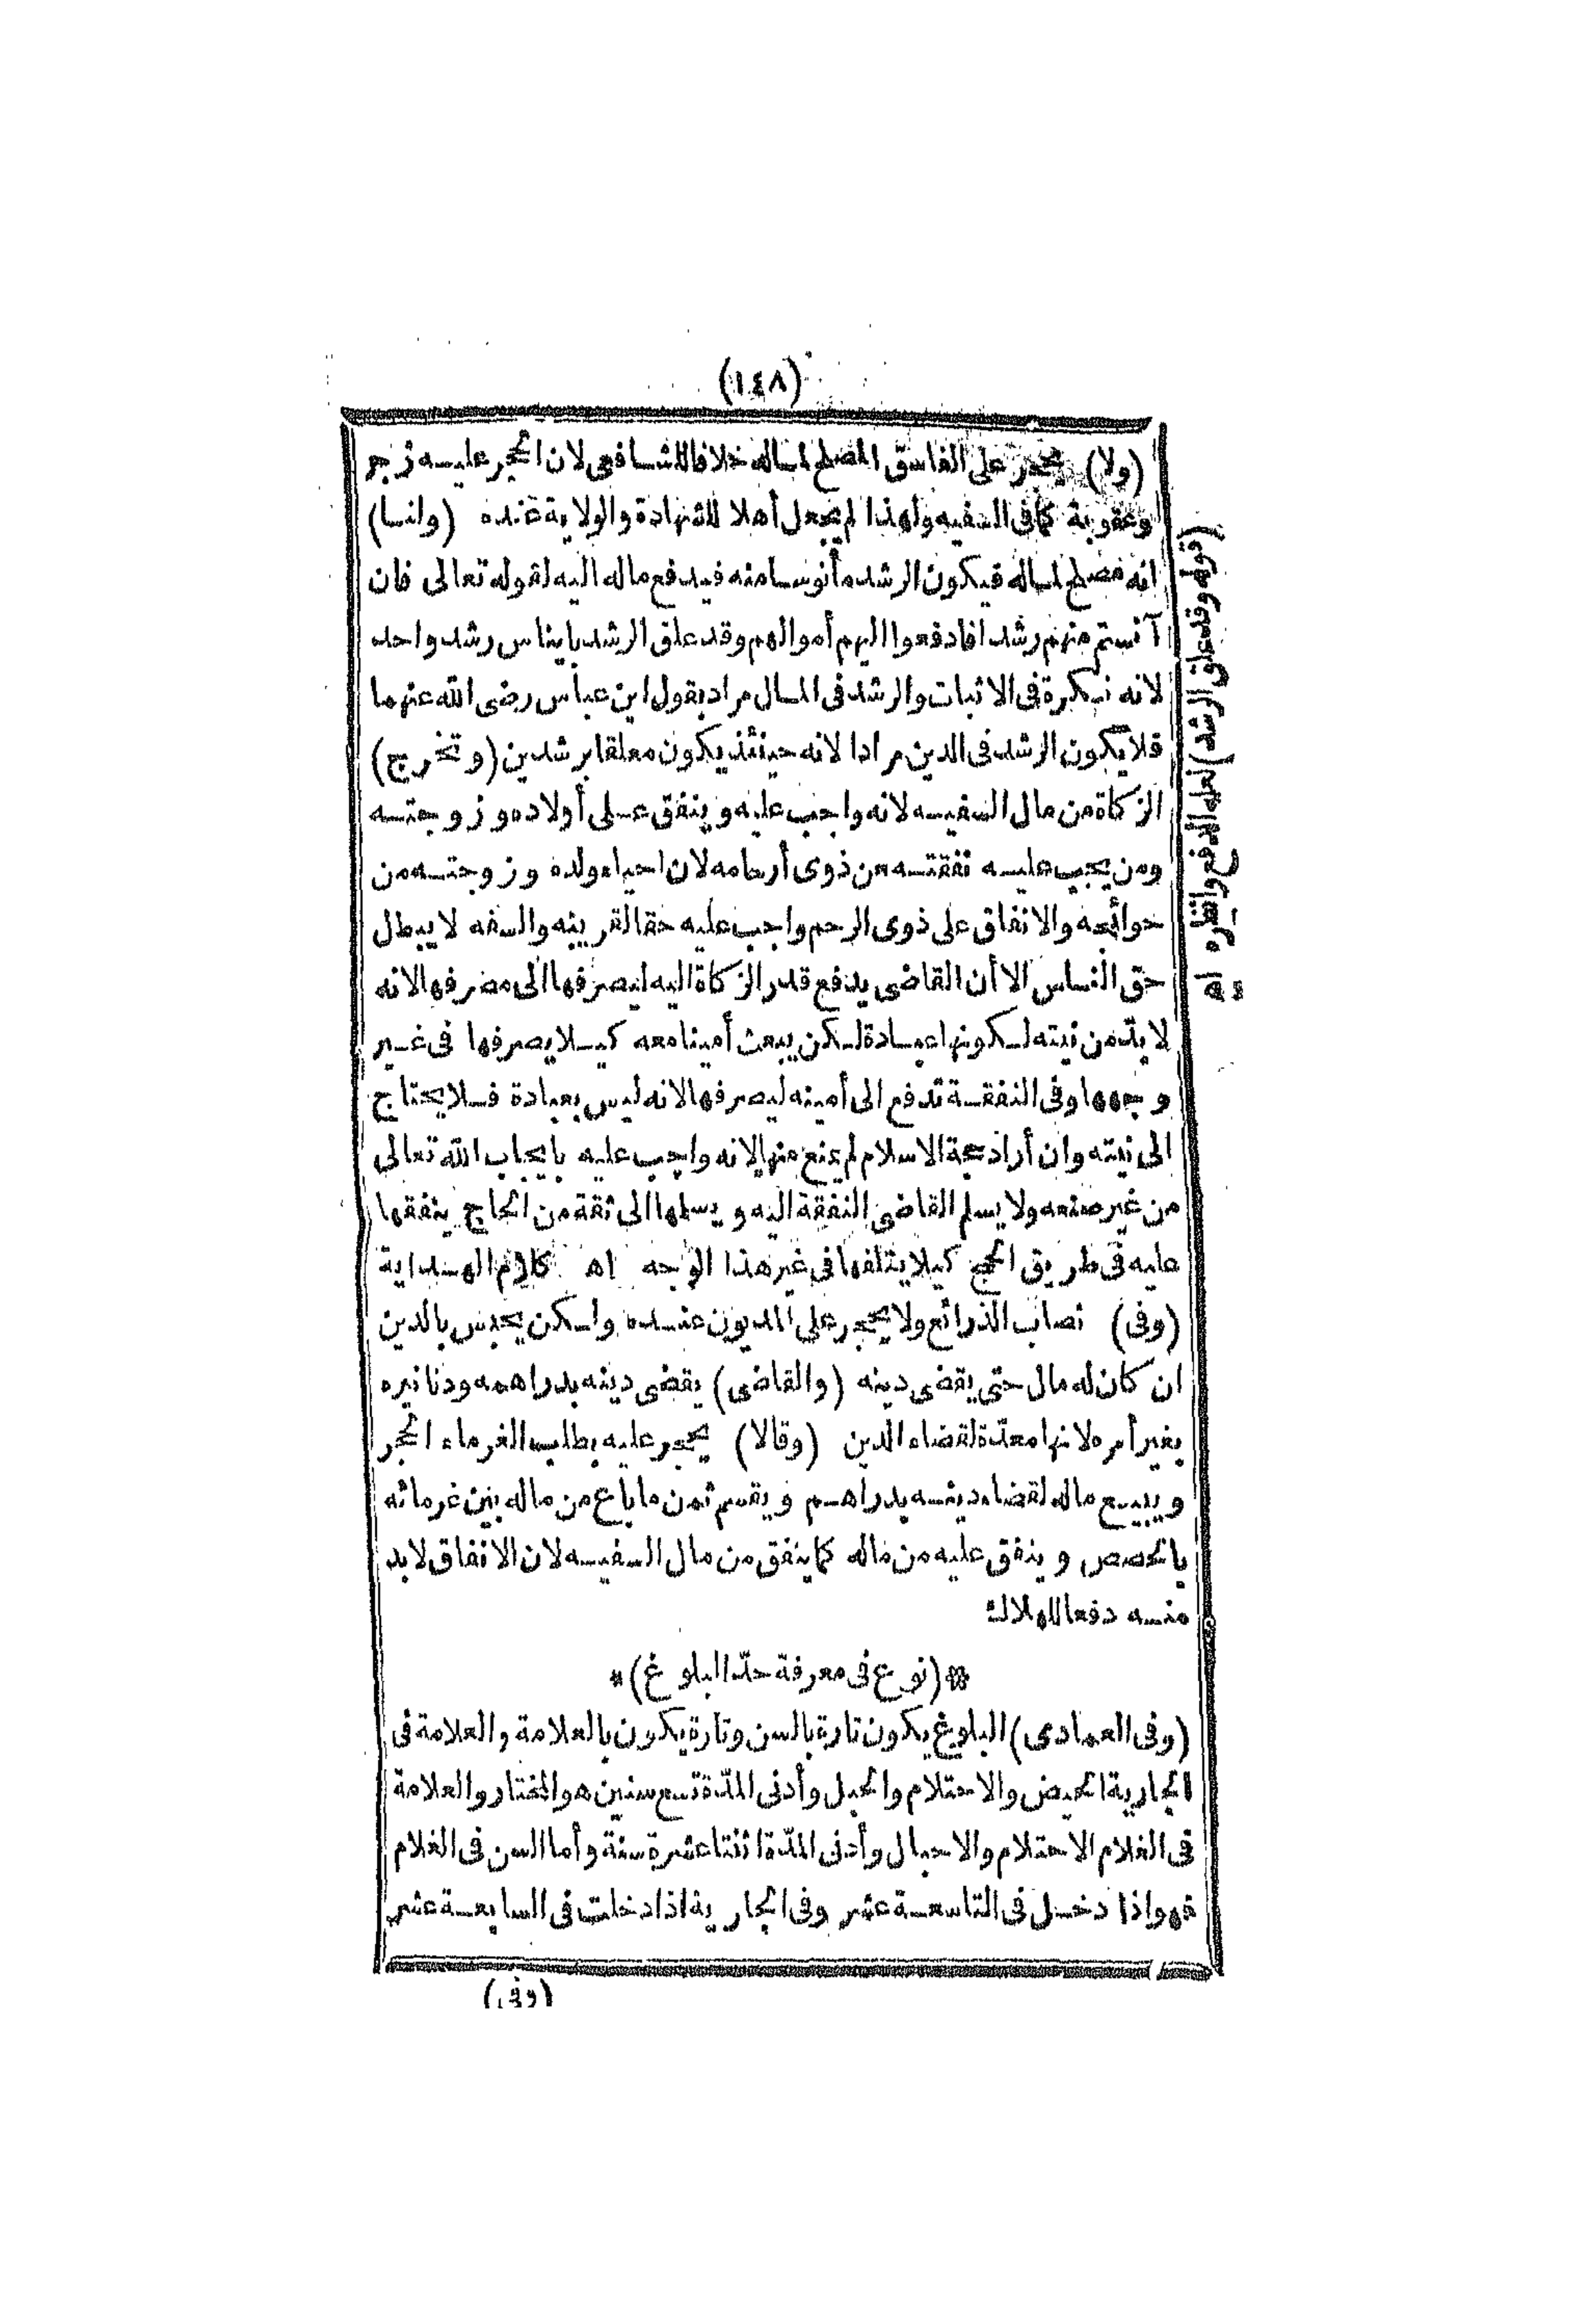 (١٤٨)
(ولا) يحجر على الفاسق المصلح لماله خلافا للشافعى لان الحجر عليه زجر
وعقوبة كما فى السفيه ولهذا لم يجعل أهلا للشهادة والولاية عنده (ولنا)
انه مصلح لماله فيكون الرشد مأنوسا منه فيدفع ماله اليه لقوله تعالى فان
آنستم منهم رشدا فادفعوا اليهم أموالهم وقد علق الرشد بايناس رشد واحد
لانه نكرة فى الاثبات والرشد فى المال مراد بقول ابن عباس رضى الله عنهما
فلا يكون الرشد فى الدين مرادا لانه حينئذ يكون معلقا برشدين (وتخرج)
الزكاة من مال السفيه لانه واجب عليه وينفق على أولاده وزوجته
ومن يجب عليه نفقته من ذوى أرحامه لان احياء ولده وزوجته من
حوائجه والانفاق على ذوى الرحم واجب عليه حقا لقريبه والسفه لا يبطل
حق الناس الا أن القاضى يدفع قدر الزكاة اليه ليصرفها الى مصرفها لانه
لا بدّ من نيته لكونها عبادة لكن يبعث أمينا معه كيلا يصرفها فى غير
وجهها وفى النفقة تدفع الى أمينه ليصرفها لانه ليس بعبادة فلا يحتاج
الى نيته وان أراد حجة الاسلام لم يمنع منها لانه واجب عليه بايجاب الله تعالى
من غير صنعه ولا يسلم القاضى النفقة اليه ويسلمها الى ثقة من الحاج ينفقها
عليه فى طريق الحج كيلا يتلفها فى غير هذا الوجه اه كلام الهداية
(وفى) نصاب الذرائع ولا يحجر على المديون عنده ولكن يحبس بالدين
ان كان له مال حتى يقضى دينه (والقاضى) يقضى دينه بدراهمه ودنانيره
بغير أمره لانها معدّة لقضاء الدين (وقالا) يحجر عليه بطلب الغرماء الحجر
ويبيع ماله لقضاء دينه بدراهم ويقسم ثمن ما باع من ماله بين غرمائه
بالحصص وينفق عليه من ماله كما ينفق من مال السفيه لان الانفاق لا بد
منه دفعا للهلاك
*(نوع فى معرفة حدّ البلوغ)*
(وفى العمادى) البلوغ يكون تارة بالسن وتارة يكون بالعلامة والعلامة فى
الجارية الحيض والاحتلام والحبل وأدنى المدّة تسع سنين هو المختار والعلامة
فى الغلام الاحتلام والاحبال وأدنى المدّة اثنتا عشرة سنة وأما السن فى الغلام
فهو اذا دخل فى التاسعة عشر وفى الجارية اذا دخلت فى السابعة عشر
(وفى)
(قوله وقد علق الرشد) لعله الدفع وانظره اه